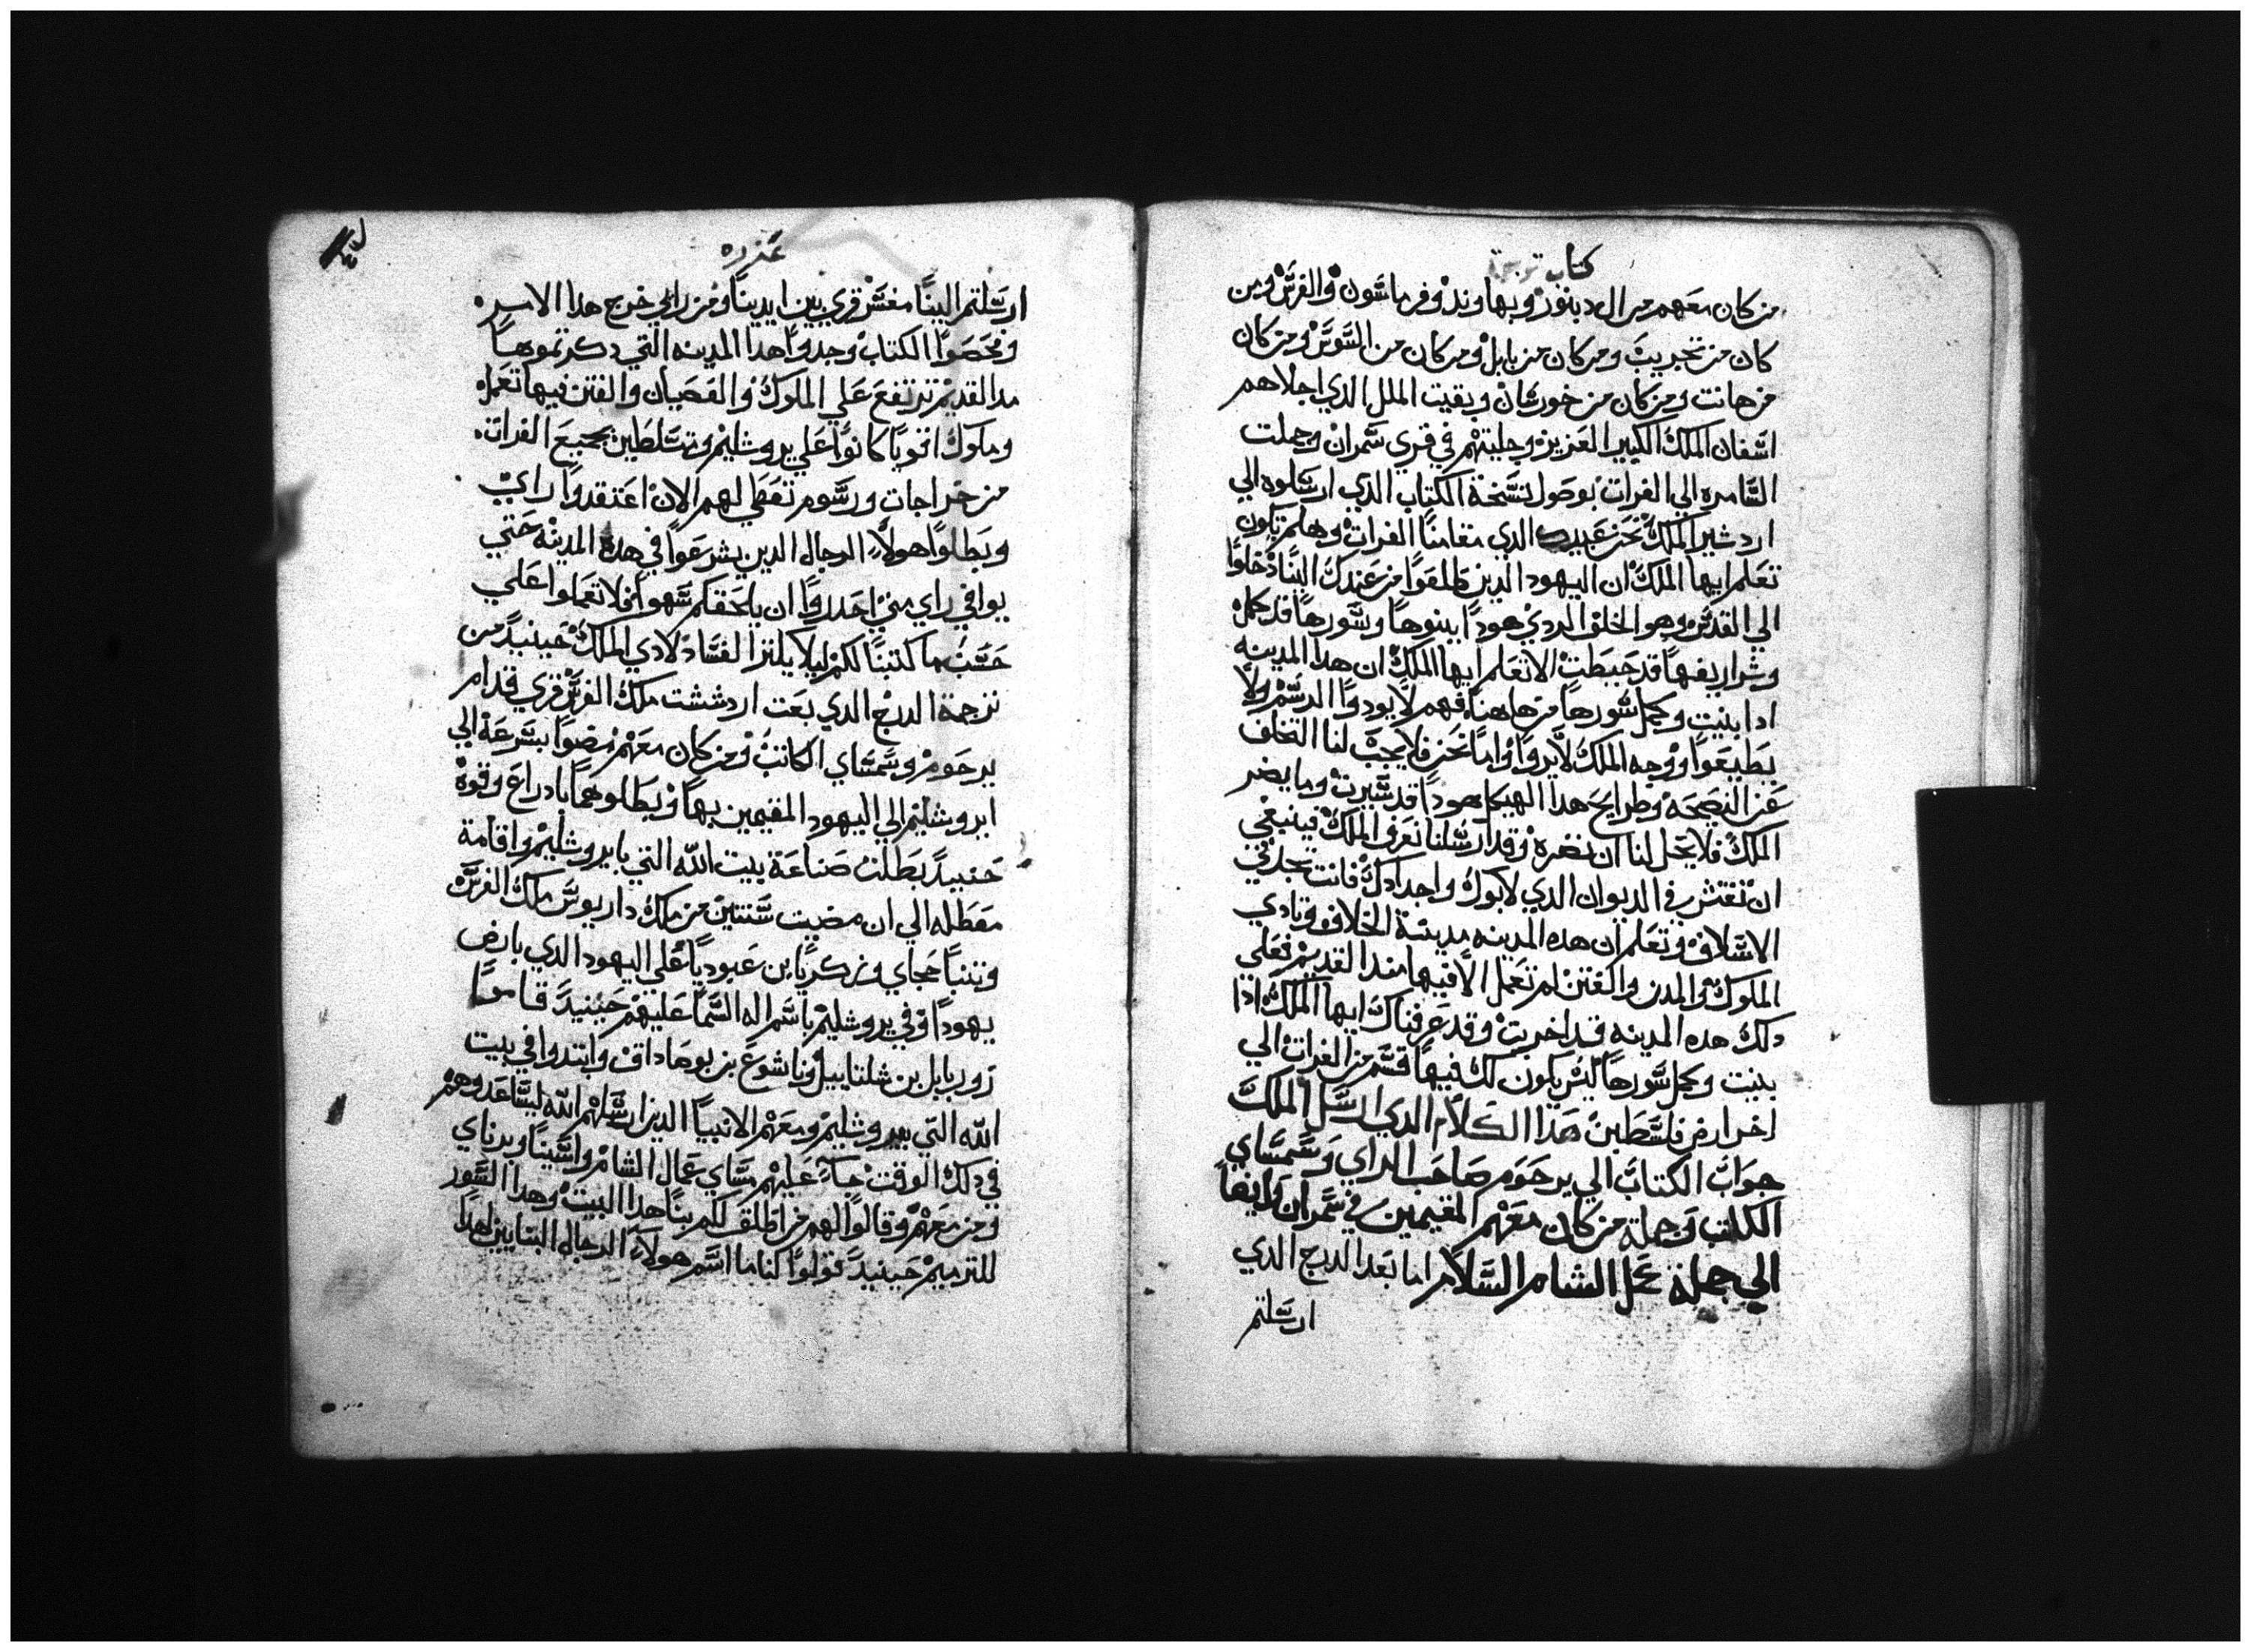 كتاب
من كان معهم من ال دينور وبهاوند وفرماسون والفرس ومن
كان من تجريب ومن كان من بابل ومن كان من السوس ومن كان
من هانت ومن كان من خورشان وبقيت الملل الذي اجلاهم
اسفان الملك الكبير العزيز وجليتهم في قري سمران وجملت
السامره الي الفرات بوصول نسخة الكتاب الدي ارسلوه الي
اردشير الملك نحن عبيدك الدي مقامنا الفرات وهلم تكون
تعلم ايها الملك ان اليهود الدين طلعوا من عندك الينا دخلوا
الي القدس وهو الخلف الردي هودا يبنوها وسورها قد كمل
وشراريفها قد حبطت الا تعلم ايها الملك ان هدا المدينه
ادا بنيت وكمل سورها من هاهنا فهم لا يودوا الرسم ولا
يطيعوا ووجه الملك لا يروا واما نحن فلا يجب لنا التخلف
عن النصحه وطرايح هدا الهيكل هودا قد سيرت وما يضر
الملك فلا يحل لنا ان نضره وقد ارسلنا نعرف الملك فينبغي
ان تفتش في الديوان الدي لابوك واجدادك فانت تجد في
الاسلاف وتعلم ان هده المدينه مدينة الخلاف وتادي
الملوك والمدن والفتن لم تعمل الا فيها مند القديم فعلي
دلك هده المدينه قد اخربت وقد عرفناك ايها الملك ادا
بنيت وكمل سورها ليس يكون لك فيها قسم من الفرات الي
اخر ارض فلسطين هدا الكلام الدي ارسل الملك
جواب الكتاب الي يرحوم صاحب الراي وسمساي
الكاتب وجملة من كان معهم المقيمين في سمران وايضا
الي جملة عمل الشام السلام اما بعد الدرج الدي
ارسلتم
عزره
ارسلتم الينا مفسر قري بين ايدينا ومن رايي خرج هدا الامر
وفحصوا الكتاب وجدوا هدا المدينه التي دكرتموها
مد القديم ترتفع علي الملوك والعصيان والفتن فيها تعمل
وملوك اقويا كانوا علي يروشليم وتسلطين بجميع الفرات
من خراجات ورسوم تعطي لهم الان اعتقدوا راي
وبطلوا هولاء الرجال الدين يشرعوا في هده المدينه حتي
يوافي راي مني احدروا ان يلحقكم سهوا فلا تعملوا علي
حسب ما كتبنا لكم ليلا يلتز الفساد لادي الملك حينيد من
ترجمة الدرج الدي بعت اردششت ملك الفرس قري قدام
يرحوم وسمساي الكاتب ومن كان معهم مضوا بسرعة الي
ايروشليم الي اليهود المقيمين بها وبطلوهما بادراع وقوة
حنييد بطلت صناعة بيت الله التي بايروشليم واقامة
معطله الي ان مضيت سنتين من ملك داريوس ملك الفرس
وتنبا حجاي وزكريا بن عبوديا علي اليهود الدي بارض
يهودا وفي يروشليم باسم اله السما عليهم حينيد قاموا
زوربابل بن شلتاييل وياشوع بن يوصاداق وابتدوا في بيت
الله التي بيروشليم ومعهم الانبيا الدين ارسلهم الله ليساعدوهم
في دلك الوقت جاء عليهم مساي عمال الشام واسينا ويرناي
ومن معهم وقالوا لهم من اطلق لكم بنا هدا البيت وهدا السور
للترميم حينيد قولوا لنا ما اسم هولاء الرجال البنايين لهدا